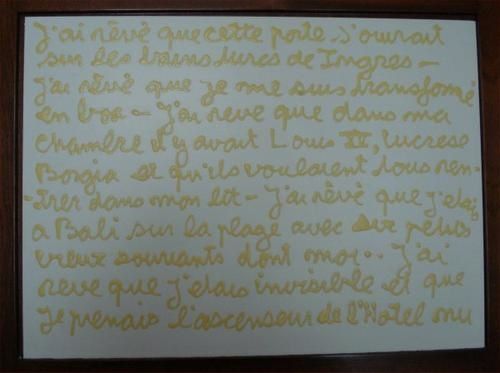 J'ai rêvé que cette porte s'ouvrait
sur les bains turcs de Ingres –
j'ai rêvé que je me suis transformé
en boa – j'ai reve que dans ma
chambre il y avait Louis XV, lucrese
Borgia et qu'ils voulaient tous ren-
-trer dans mon lit – J'ai rêvé que j'etais
a Bali sur la plage avec petits
vieux souriants dont moi.. J'ai
reve que j'etais invisible et que
Je prenais l'ascenseur de l'Hotel nu